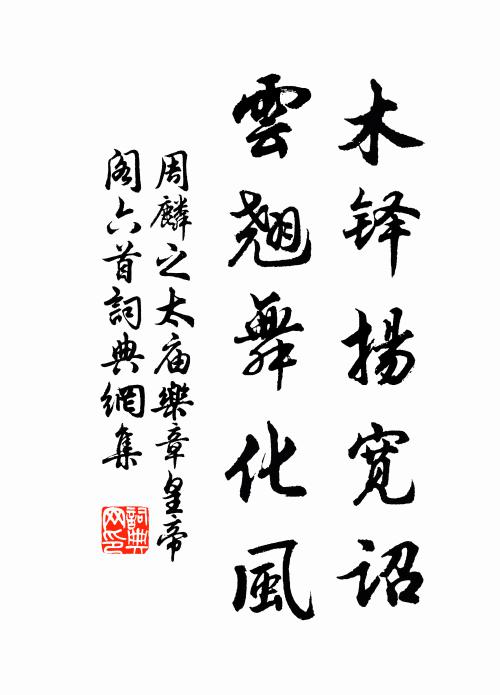 木铎揚寬詔
雲翹舞化風
周麟之太庙樂章皇帝
阁六首詞典網集
詞典
网印